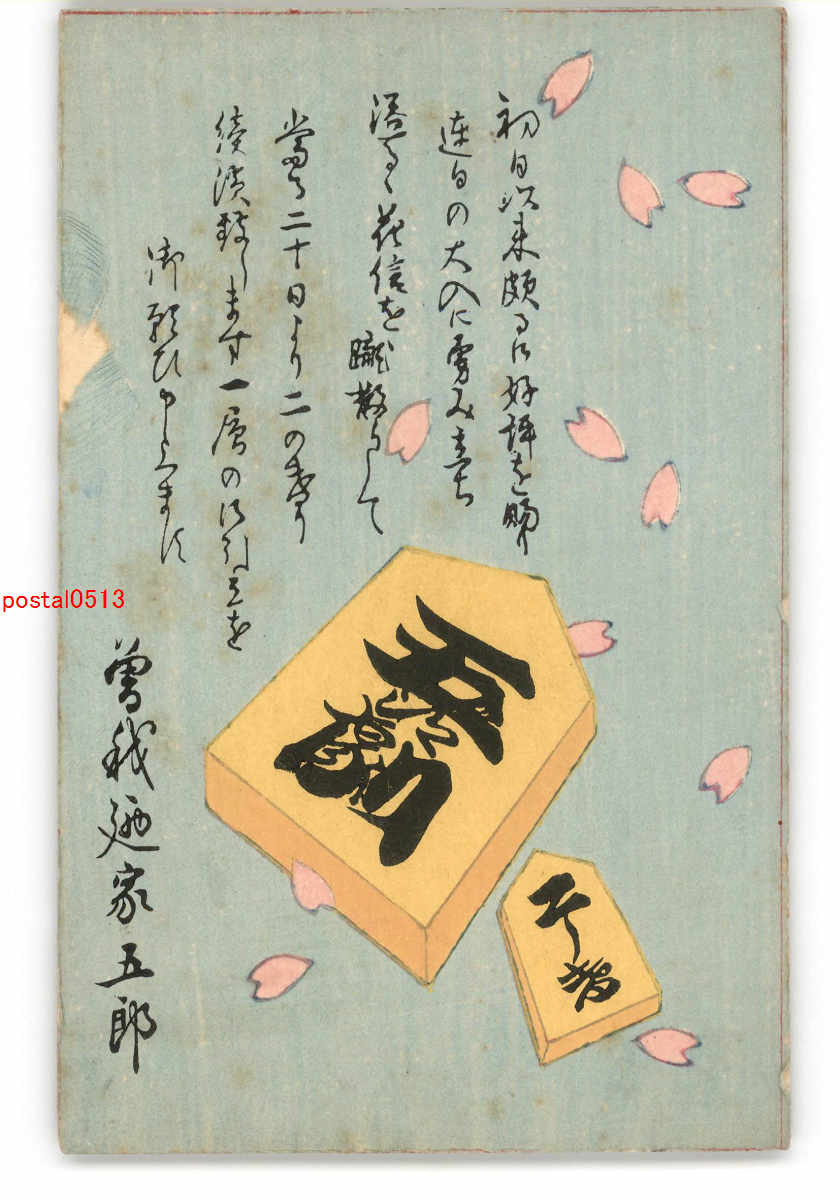 初日以来頗る御好評を賜り
連日の大入に勇み立ち
語る花信を蹴散らして
當る二十日より二の替り
続演致します一層の御引立を
御願ひ申上ます
曽我廼家五郎
postal0513